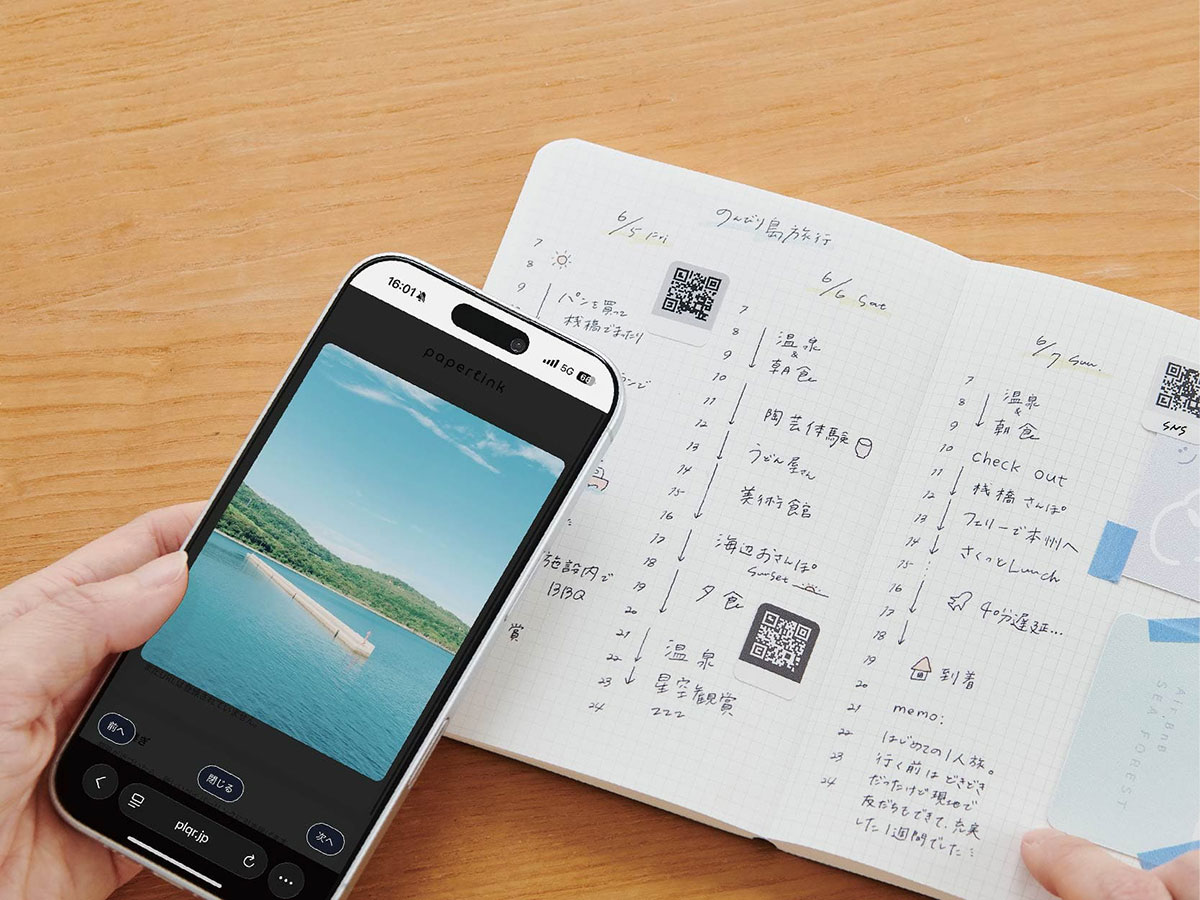 16:01
5G 66
papertink
前へ
閉じる
次へ
plqr.jp
のんびり島旅行
6/5 Fri
7
8
9
パンを買って
桟橋でまったり
施設内で
BBQ
賞
6/6 Sat
7
8
温泉
&
9
朝食
10
11
12
陶芸体験
13
うどん屋さん
14
15
美術館
16
17
海辺おさんぽ。
18
Sunset
19
夕食
20
21
22
温泉
23
星空観賞
24
zzz
6/7 Sun.
7
8
温泉
&
9
朝食
10
check out
11
12
桟橋さんぽ。
13
フェリーで本州へ
14
さくっとLunch
15
16
17
40分遅延...
18
19
到着
20
21
memo:
22
はじめての1人旅。
23
行く前はどきどき
24
だったけど現地で
友だちもできて、充実
した1週間でした
SNS
Air.BnB
SEA FOREST